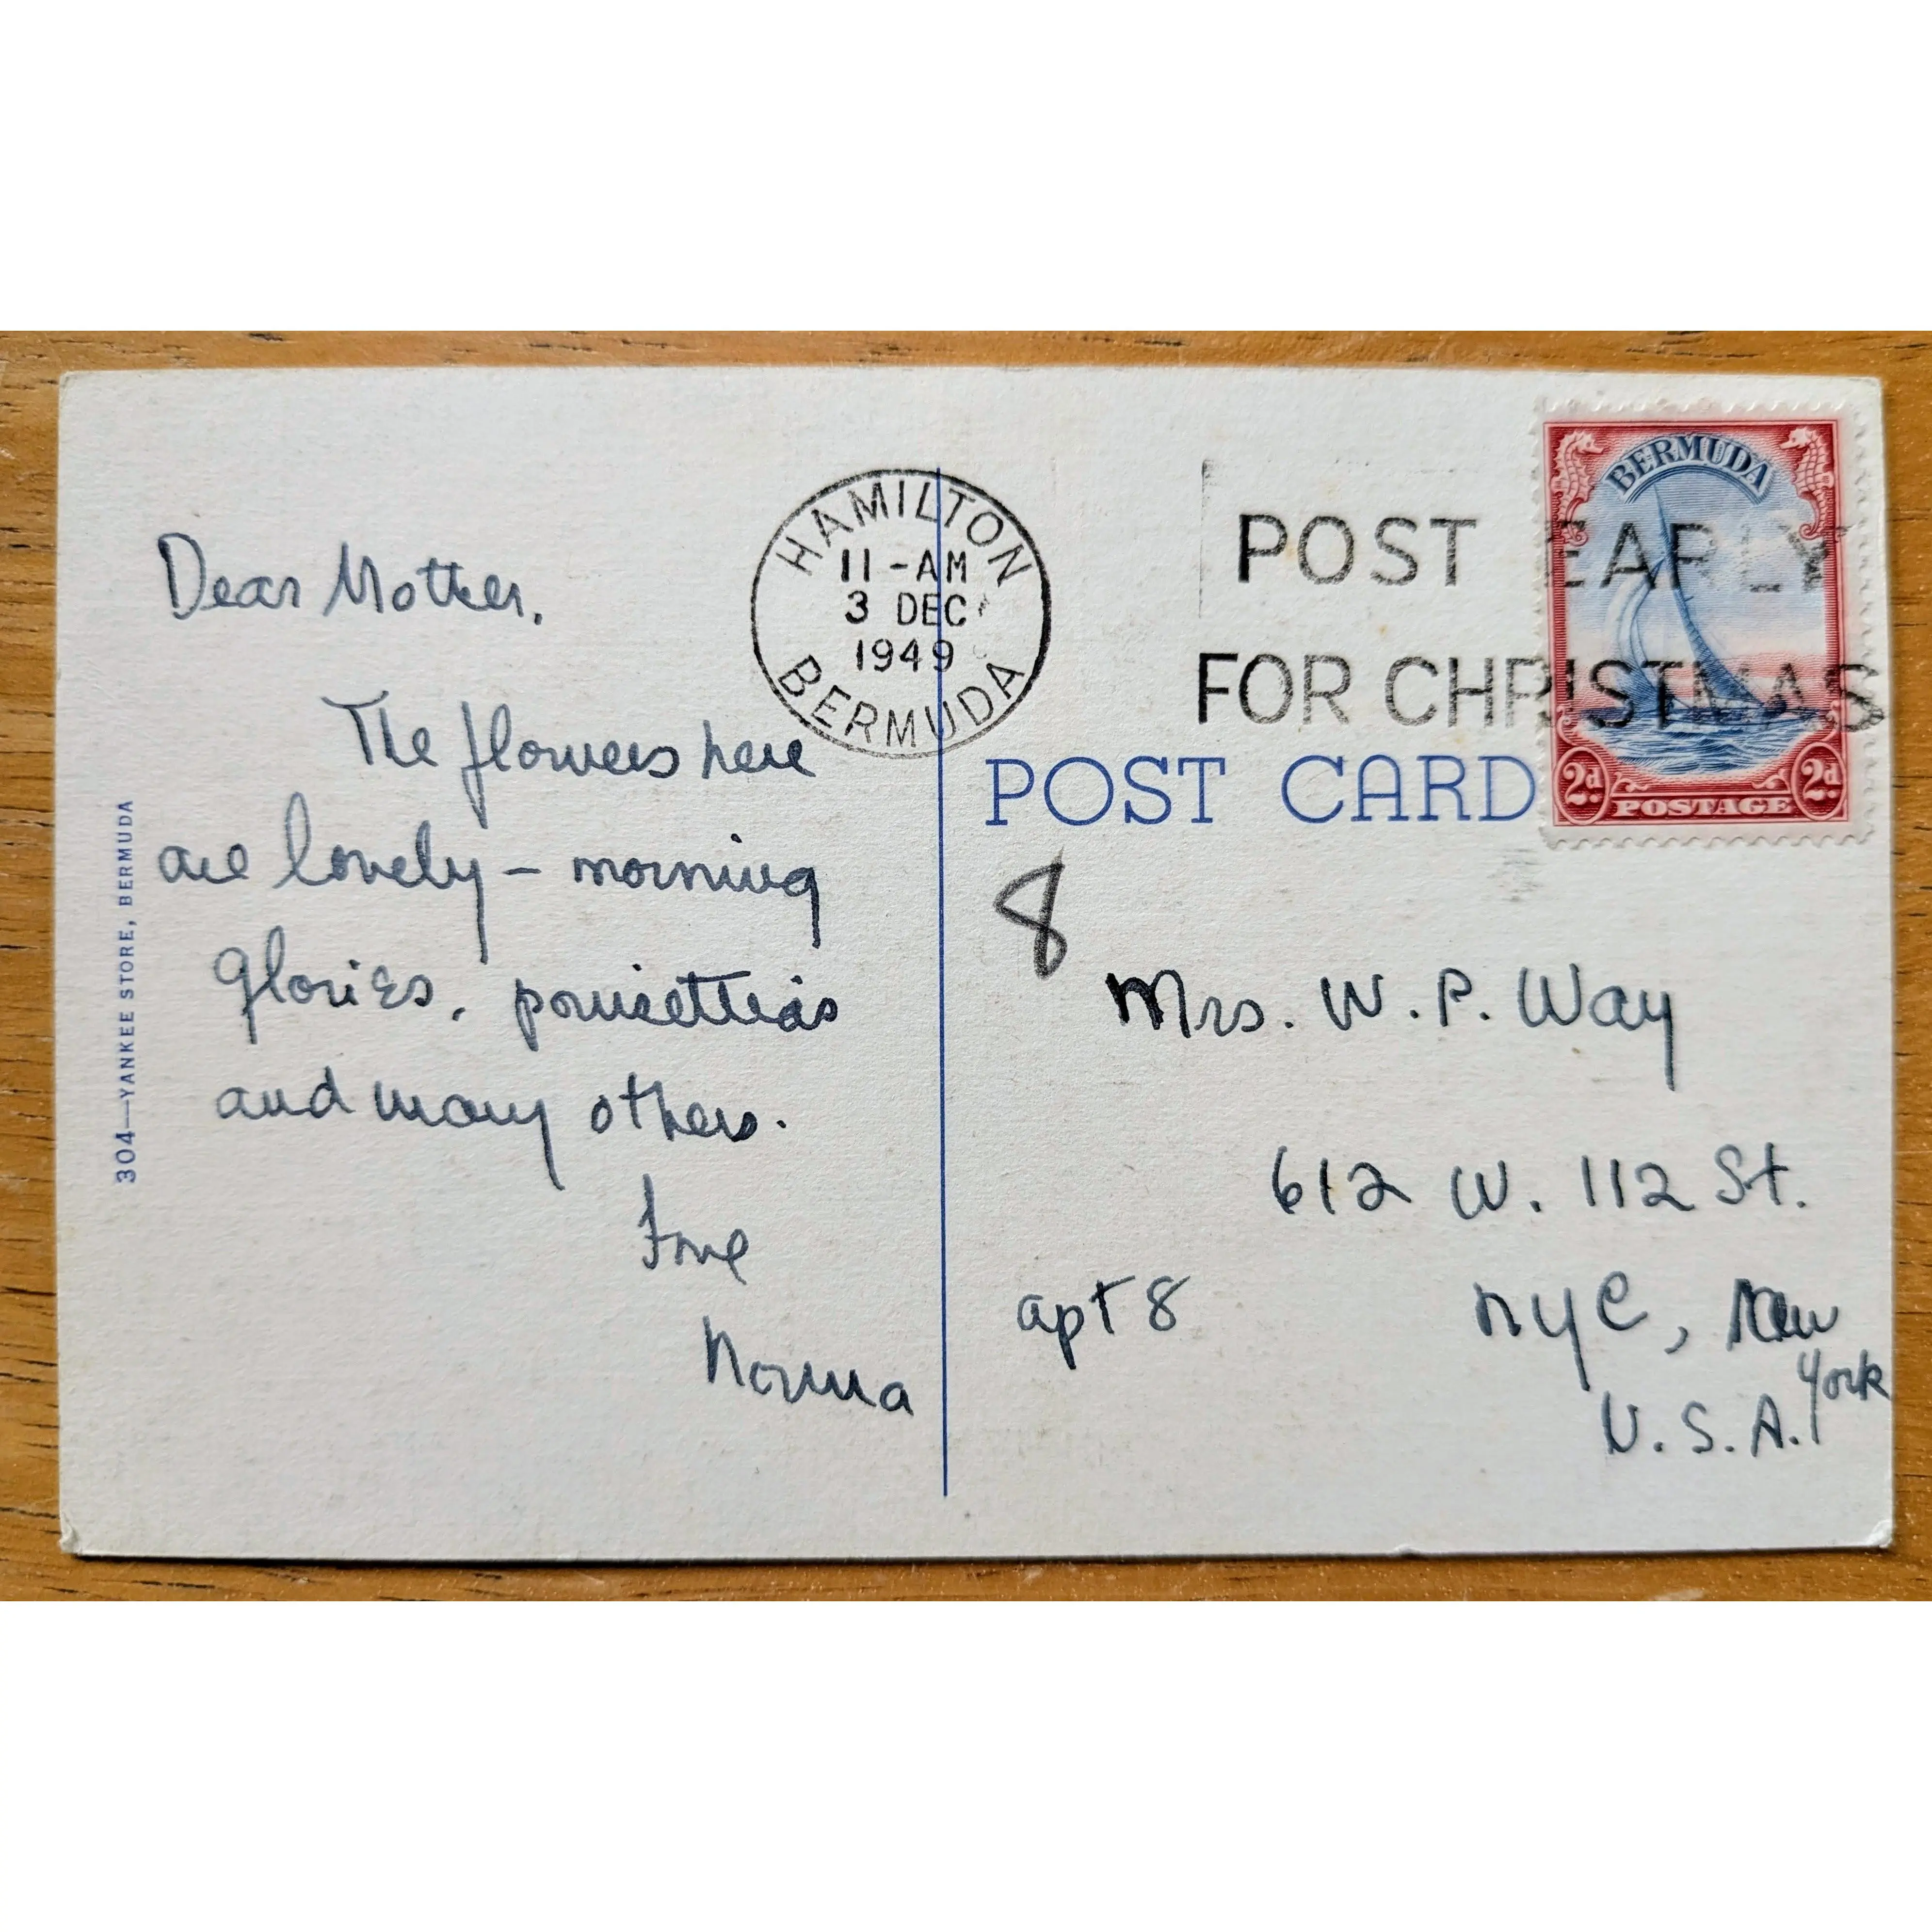 Dear Mother,
The flowers here
are lovely – morning
glories, poinsettias
and many others.
Love
Norma
304—YANKEE STORE, BERMUDA
HAMILTON
11-AM
3 DEC
1949
BERMUDA
POST EARLY
FOR CHRISTMAS
BERMUDA
2d POSTAGE 2d
POST CARD
8
Mrs. W. P. Way
612 W. 112 St.
apt 8
nyc, New
York
U.S.A.